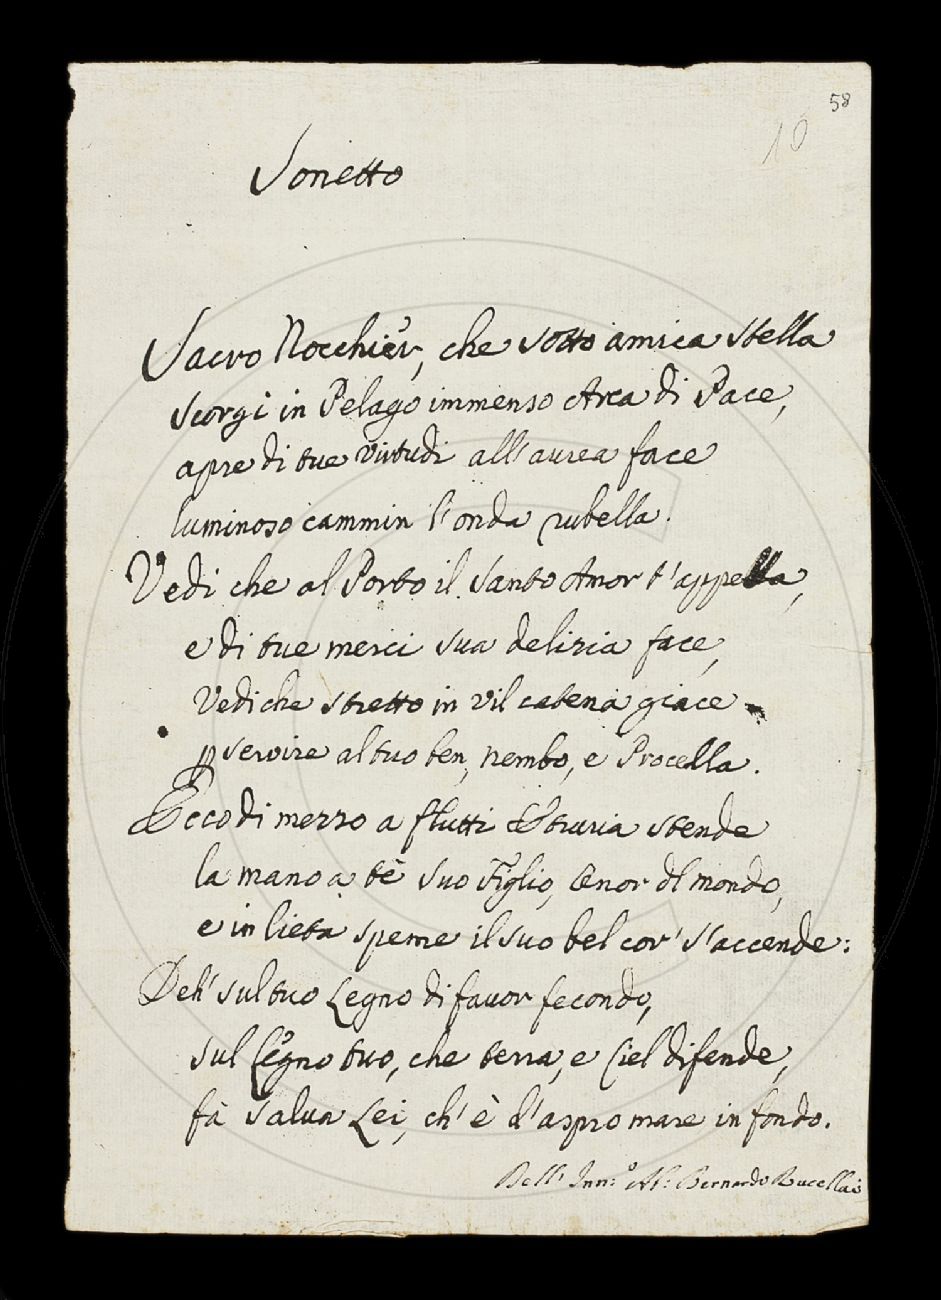 58
10
Sonetto
Sacro Nocchier, che sotto amica stella
scorgi in Pelago immenso Arca di Pace,
apre di tue virtudi all'aurea face
luminoso cammin l'onda rubella.
Vedi che al Porto il Santo Amor t'appella,
e di tue merci sua delizia face,
Vedi che stretto in vil catena giace
p servire al tuo ben, nembo, e Procella.
Ecco di mezzo a flutti Etruria stende
la mano a tè suo Figlio, Tenor dl mondo,
e in lieta speme il suo bel cor' s'accende:
Deh' sul tuo Legno di favor fecondo,
sul Legno tuo, che terra, e Ciel difende,
fà salva Lei, ch' è d'aspro mare in fondo.
Dell' Inn:º Ab: Bernardo Bucellai